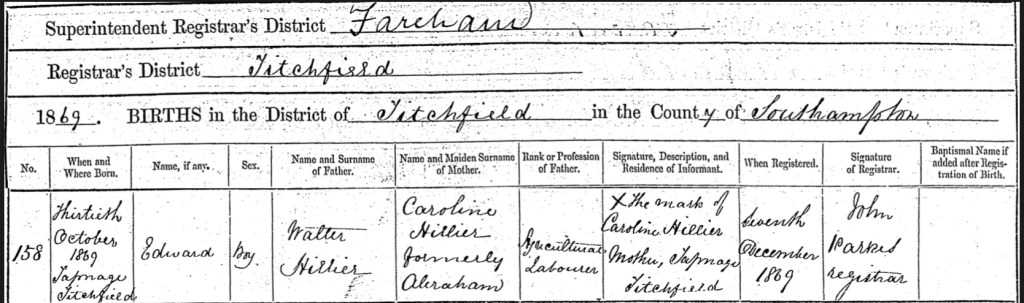 Superintendent Registrar's District Fareham
Registrar's District Titchfield
1869. BIRTHS in the District of Titchfield in the County of Southampton
No. When and Where Born. Name, if any. Sex. Name and Surname of Father. Name and Maiden Surname of Mother. Rank or Profession of Father. Signature, Description, and Residence of Informant. When Registered. Signature of Registrar. Baptismal Name if added after Registration of Birth.
158
Thirtieth
October
1869
Tapnage
Titchfield
Edward
Boy
Walter
Hillier
Caroline
Hillier
formerly
Abraham
Agricultural
Labourer
X The mark of
Caroline Hillier
Mother, Tapnage
Titchfield
Seventh
December
1869
John
Parkes
registrar